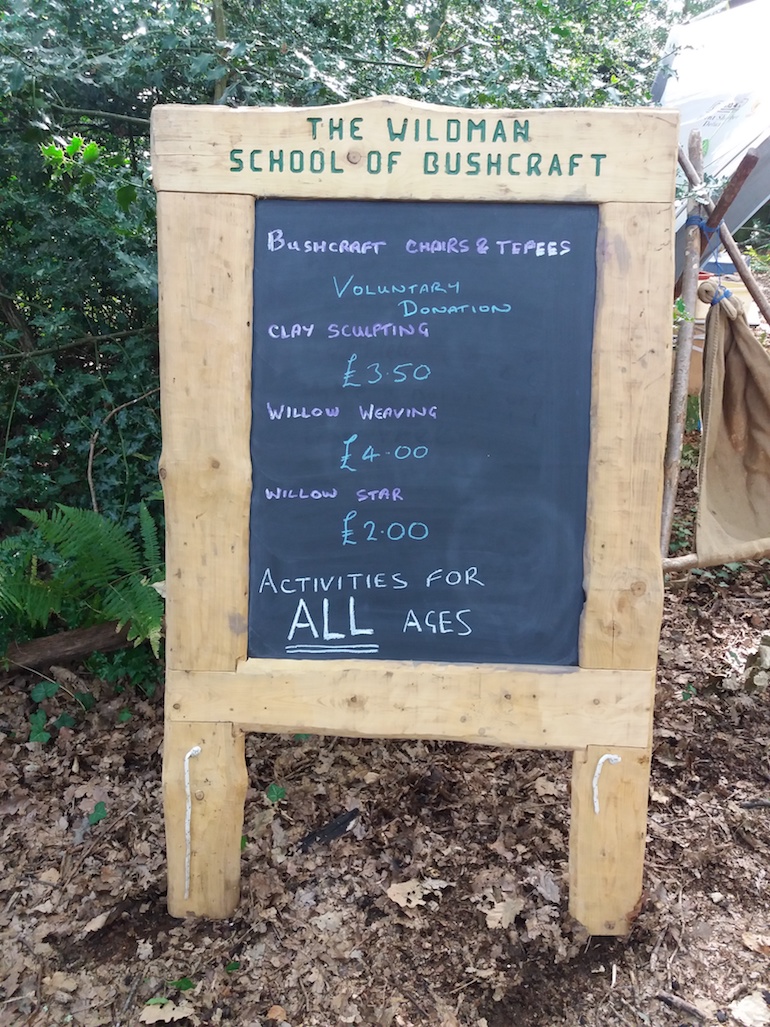 THE WILDMAN
SCHOOL OF BUSHCRAFT
BUSHCRAFT CHAIRS & TEPEES
VOLUNTARY
DONATION
CLAY SCULPTING
£3.50
WILLOW WEAVING
£4.00
WILLOW STAR
£2.00
ACTIVITIES FOR
ALL AGES